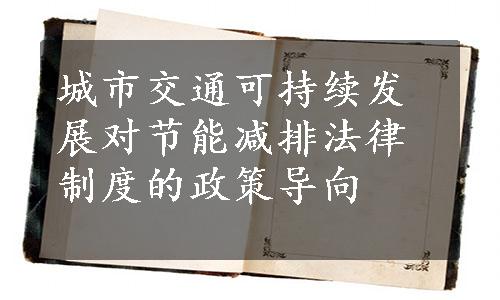 城市交通可持续发
展对节能减排法律
制度的政策导向